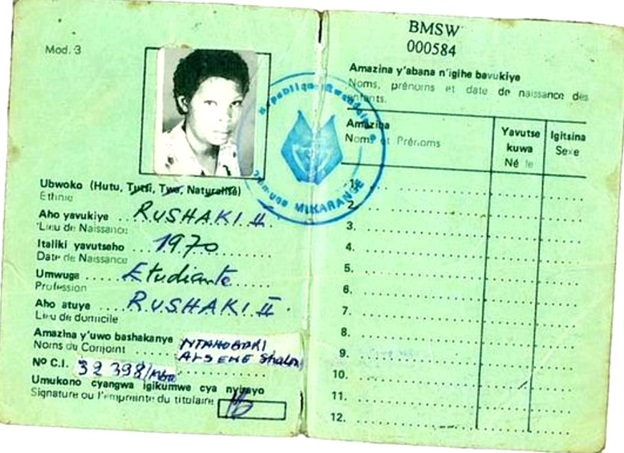 Mod. 3
Ubwoko (Hutu, Tutsi, Twa, Naturalisé)
Ethnie
Aho yavukiye RUSHAKI II
Lieu de Naissance
Italiki yavutseho 1970
Date de Naissance
Umwuga Etudiante
Profession
Aho atuye RUSHAKI II
Lieu de domicile
Amazina y'uwo bashakanye
Noms du Conjoint
No C.I. 32398/
Umukono cyangwa igikumwe cya nyirayo
Signature ou l'empreinte du titulaire
République Rwandaise
MUKARANGE
BMSW
000584
Amazina y'abana n'igihe bavukiye
Noms, prénoms et date de naissance des
enfants.
Amazina
Noms et Prénoms
Yavutse
kuwa
Né le
Igitsina
Sexe
1.
2.
3.
4.
5.
6.
7.
8.
9.
10.
11.
12.